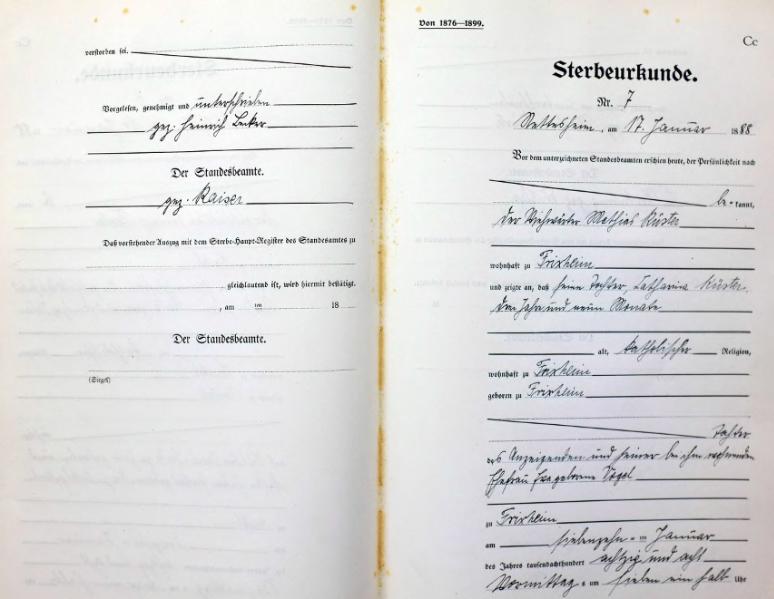 verstorben sei.
Vorgelesen, genehmigt und unterschrieben
gez. Heinrich Becker
Der Standesbeamte.
gez. Kaiser
Daß vorstehender Auszug mit dem Sterbe-Haupt-Register des Standesamtes zu
gleichlautend ist, wird hiermit bestätigt.
, am ten 18
Der Standesbeamte.
(Siegel)
Von 1876—1899.
Cc
Sterbeurkunde.
Nr. 7
Nettesheim, am 17. Januar 1888
Vor dem unterzeichneten Standesbeamten erschien heute, der Persönlichkeit nach
be-kannt,
der Mathias Küster
wohnhaft zu Frixheim
und zeigte an, daß seine Tochter, Catharina Küster,
drei Jahre und neun Monate
alt, katholischer Religion,
wohnhaft zu Frixheim
geboren zu Frixheim
Tochter
des Anzeigenden und seiner bei ihm wohnenden
Ehefrau Eva geborene Vogel
zu Frixheim
am siebenzehn-ten Januar
des Jahres tausendachthundert achtzig und acht
Vormittags um sieben ein halb Uhr